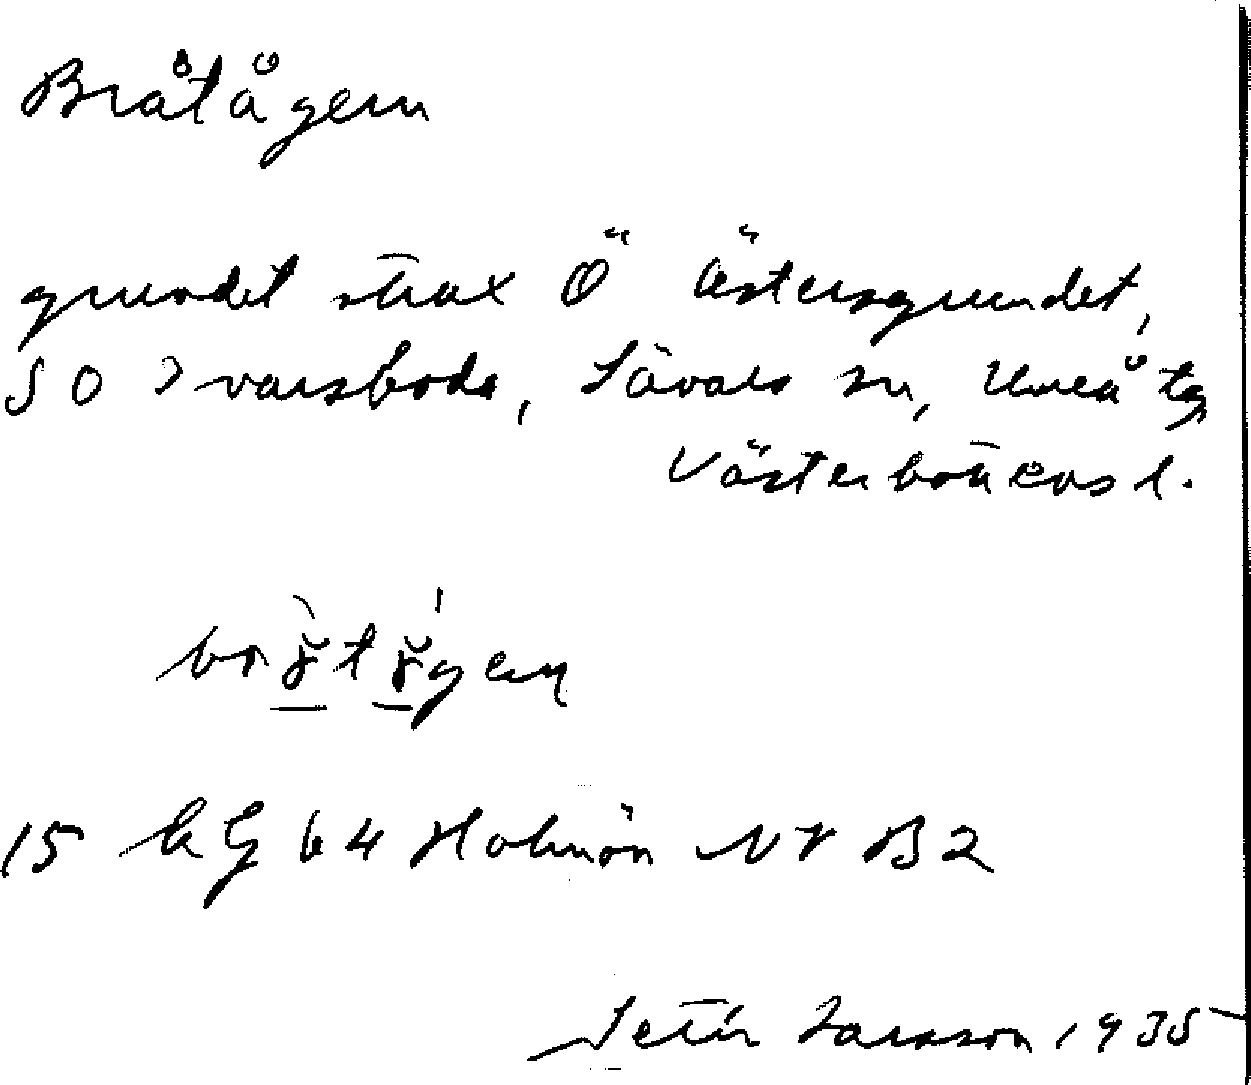 Bråtågern
grundet strax Ö Östersgrundet,
SO Ivarsboda, Sävars sn, Umeå tg
Västerbottens l.
15 kG 64 Holmön NV B2
Setin Larsson 1935